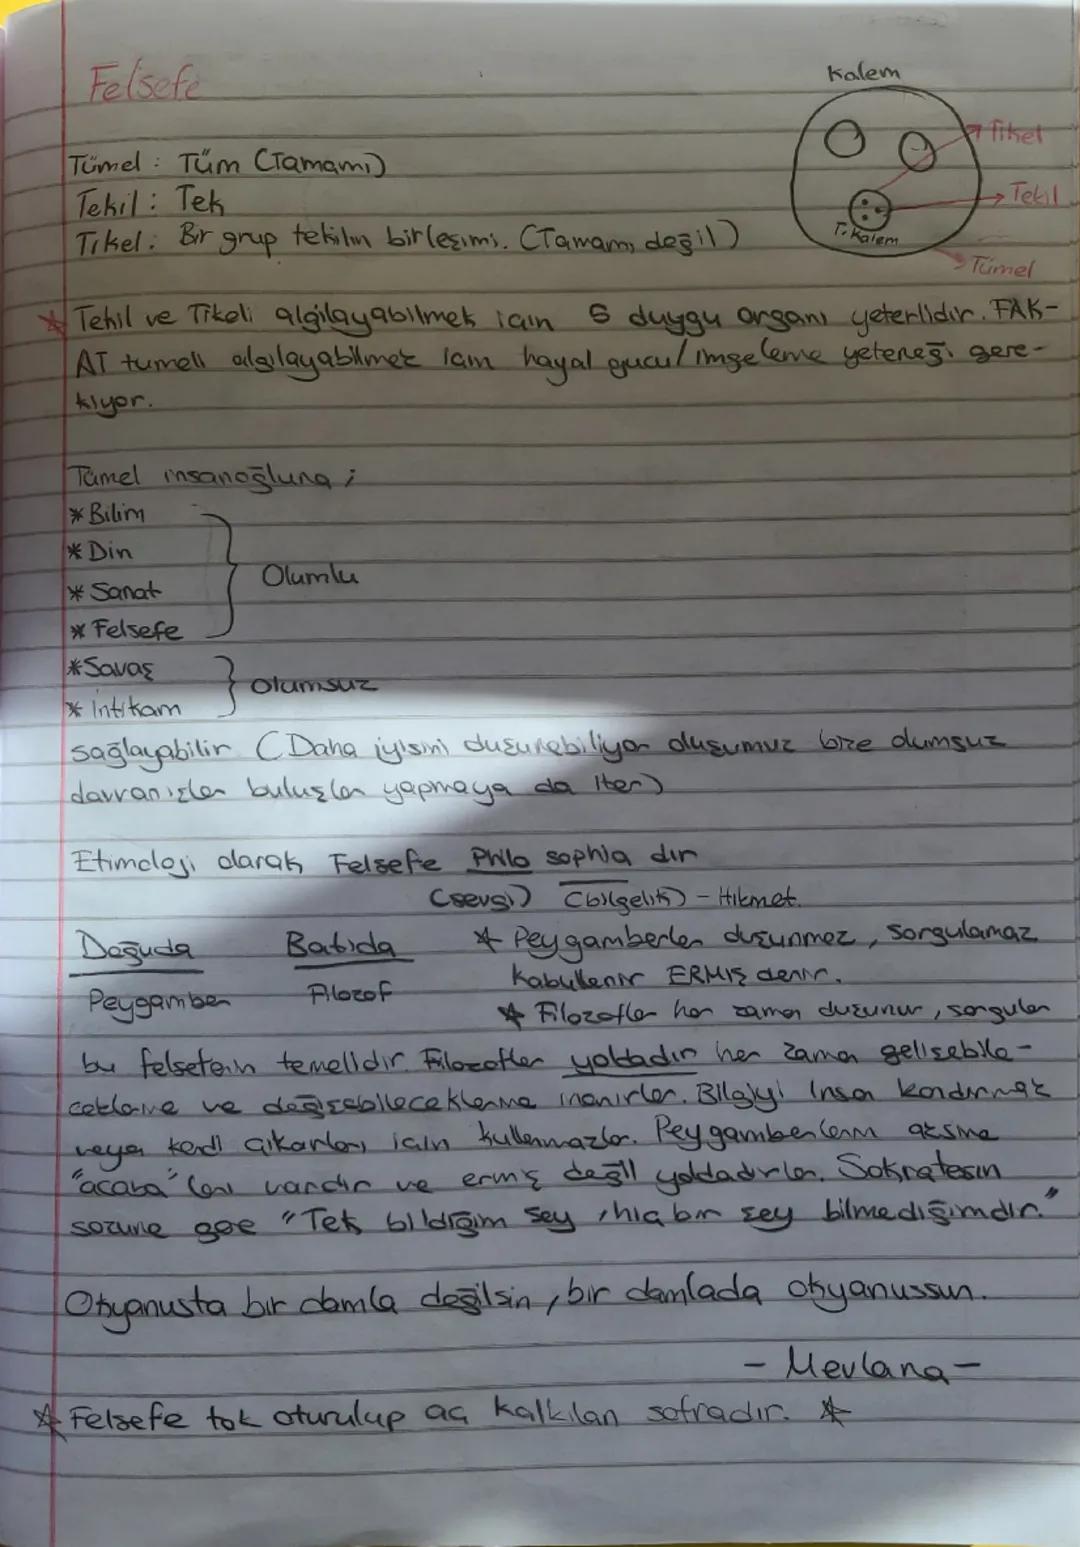 Felsefe
Kalem
Tikel
Tekil
T. Kalem
Tümel
Tümel : Tüm (Tamamı)
Tekil : Tek
Tikel : Bir grup tekilin birleşimi. (Tamamı değil)
* Tekil ve Tikeli algılayabilmek için 5 duygu organı yeterlidir. FAK-
AT tümeli algılayabilmek için hayal gücü/imgeleme yeteneği gere-
kiyor.
Tümel insanoğluna ;
* Bilim
* Din
* Sanat
* Felsefe
Olumlu
* Savaş
* İntikam
Olumsuz
sağlayabilir (Daha iyisini düşünebiliyor oluşumuz bize olumsuz
davranışlar buluşlar yapmaya da iter)
Etimoloji olarak Felsefe Philo sophia dır
(sevgi) (bilgelik) - Hikmet.
Doğuda Batıda
Peygamber Filozof
* Peygamberler düşünmez, sorgulamaz
Kabullenir ERMİŞ denir.
* Filozoflar her zaman düşünür, sorgular
bu felsefenin temelidir. Filozoflar yoldadır her zaman gelişebile-
ceklerine ve değişebileceklerine inanırlar. Bilgiyi insan kandırmak
veya kendi çıkarları için kullanmazlar. Peygamberlerin aksine
"acaba" ları vardır ve ermiş değil yoldadırlar. Sokratesin
sözüne göre "Tek bildiğim şey, hiç bir şey bilmediğimdir."
Okyanusta bir damla değilsin, bir damlada okyanussun.
- Mevlana -
* Felsefe tok oturulup aç kalkılan sofradır. *